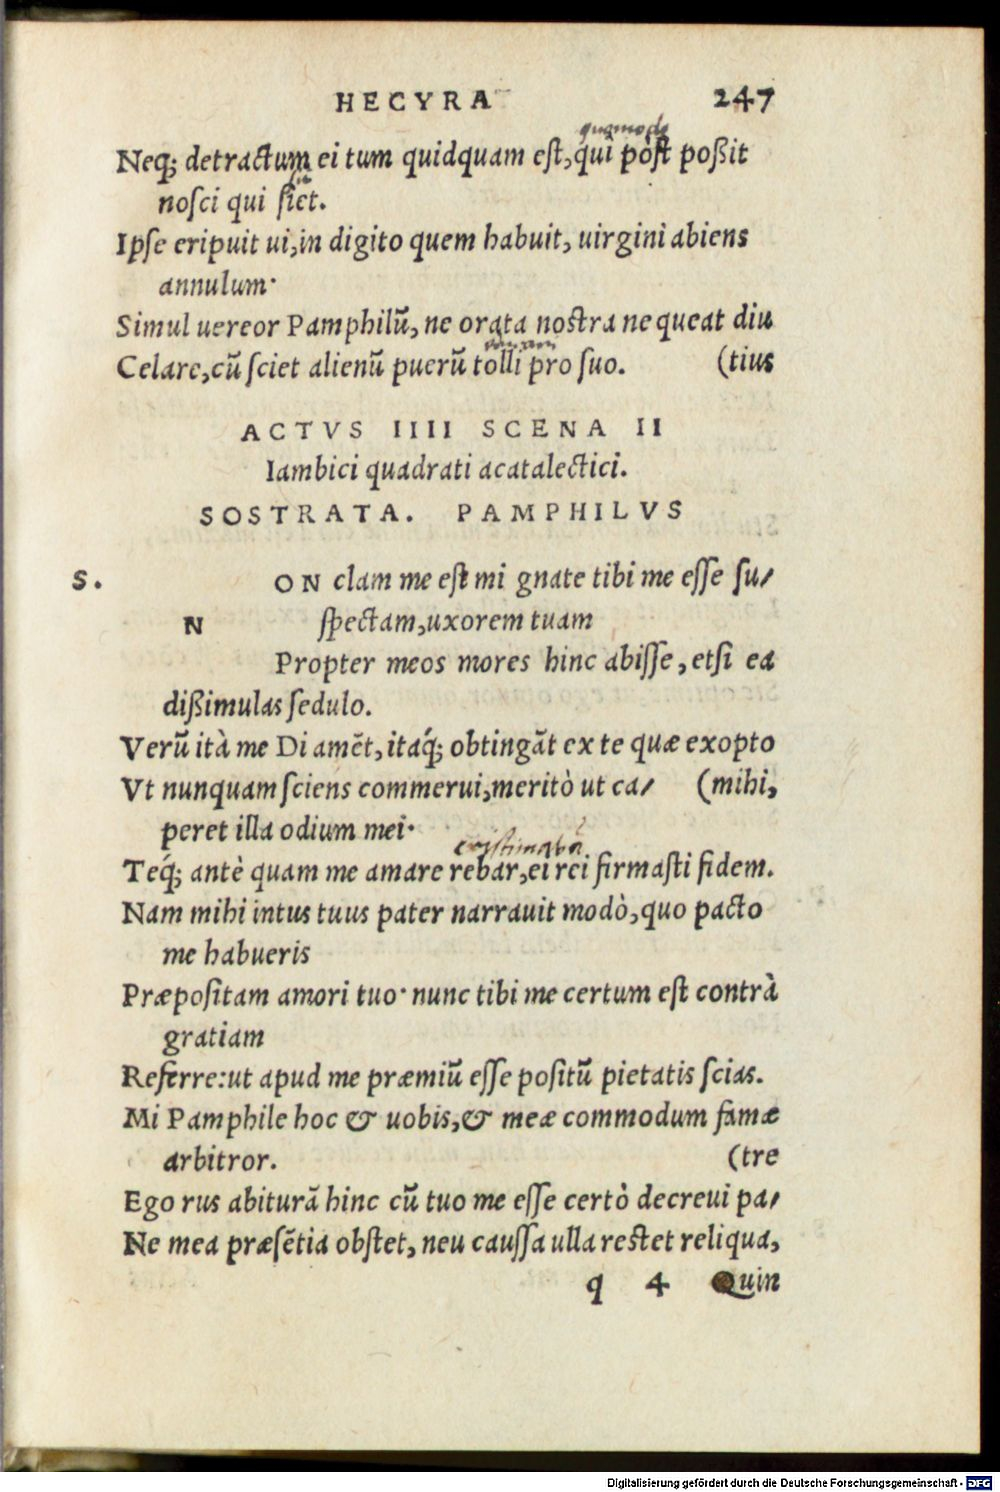 HECYRA 247
quomodo
Neq; detractum ei tum quidquam est, qui pòst poßit
sit
nosci qui siet.
Ipse eripuit ui, in digito quem habuit, uirgini abiens
annulum·
Simul uereor Pamphilū, ne orata nostra nequeat diu
Celare, cū sciet alienū puerū tolli pro suo. (tius
ACTVS IIII SCENA II
Iambici quadrati acatalectici.
SOSTRATA. PAMPHILVS
S. NON clam me est mi gnate tibi me esse su/
spectam, uxorem tuam
Propter meos mores hinc abisse, etsi ea
dißimulas sedulo.
Verū ità me Di amēt, itaq́; obtingāt ex te quæ exopto
Vt nunquam sciens commerui, meritò ut ca/ (mihi,
peret illa odium mei·
Teq́; antè quam me amare rebar, ei rei firmasti fidem.
Nam mihi intus tuus pater narrauit modò, quo pacto
me habueris
Præpositam amori tuo· nunc tibi me certum est contrà
gratiam
Referre: ut apud me præmiū esse positū pietatis scias.
Mi Pamphile hoc & uobis, & meæ commodum famæ
arbitror. (tre
Ego rus abiturā hinc cū tuo me esse certò decreui pa/
Ne mea præsētia obstet, neu caussa ulla restet reliqua,
q 4 Quin
Digitalisierung gefördert durch die Deutsche Forschungsgemeinschaft - DFG